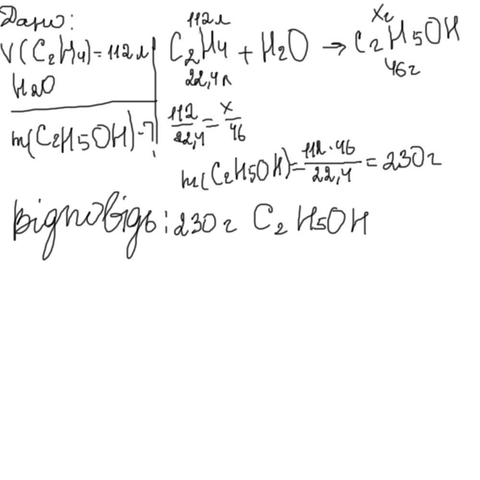 Дано:
V(C2H4)=112л
H2O
m(C2H5OH)-?
112л xг
C2H4 + H2O → C2H5OH
22,4л 46г
112/22,4 = x/46
m(C2H5OH)= 112·46/22,4 = 230г
Відповідь: 230г C2H5OH